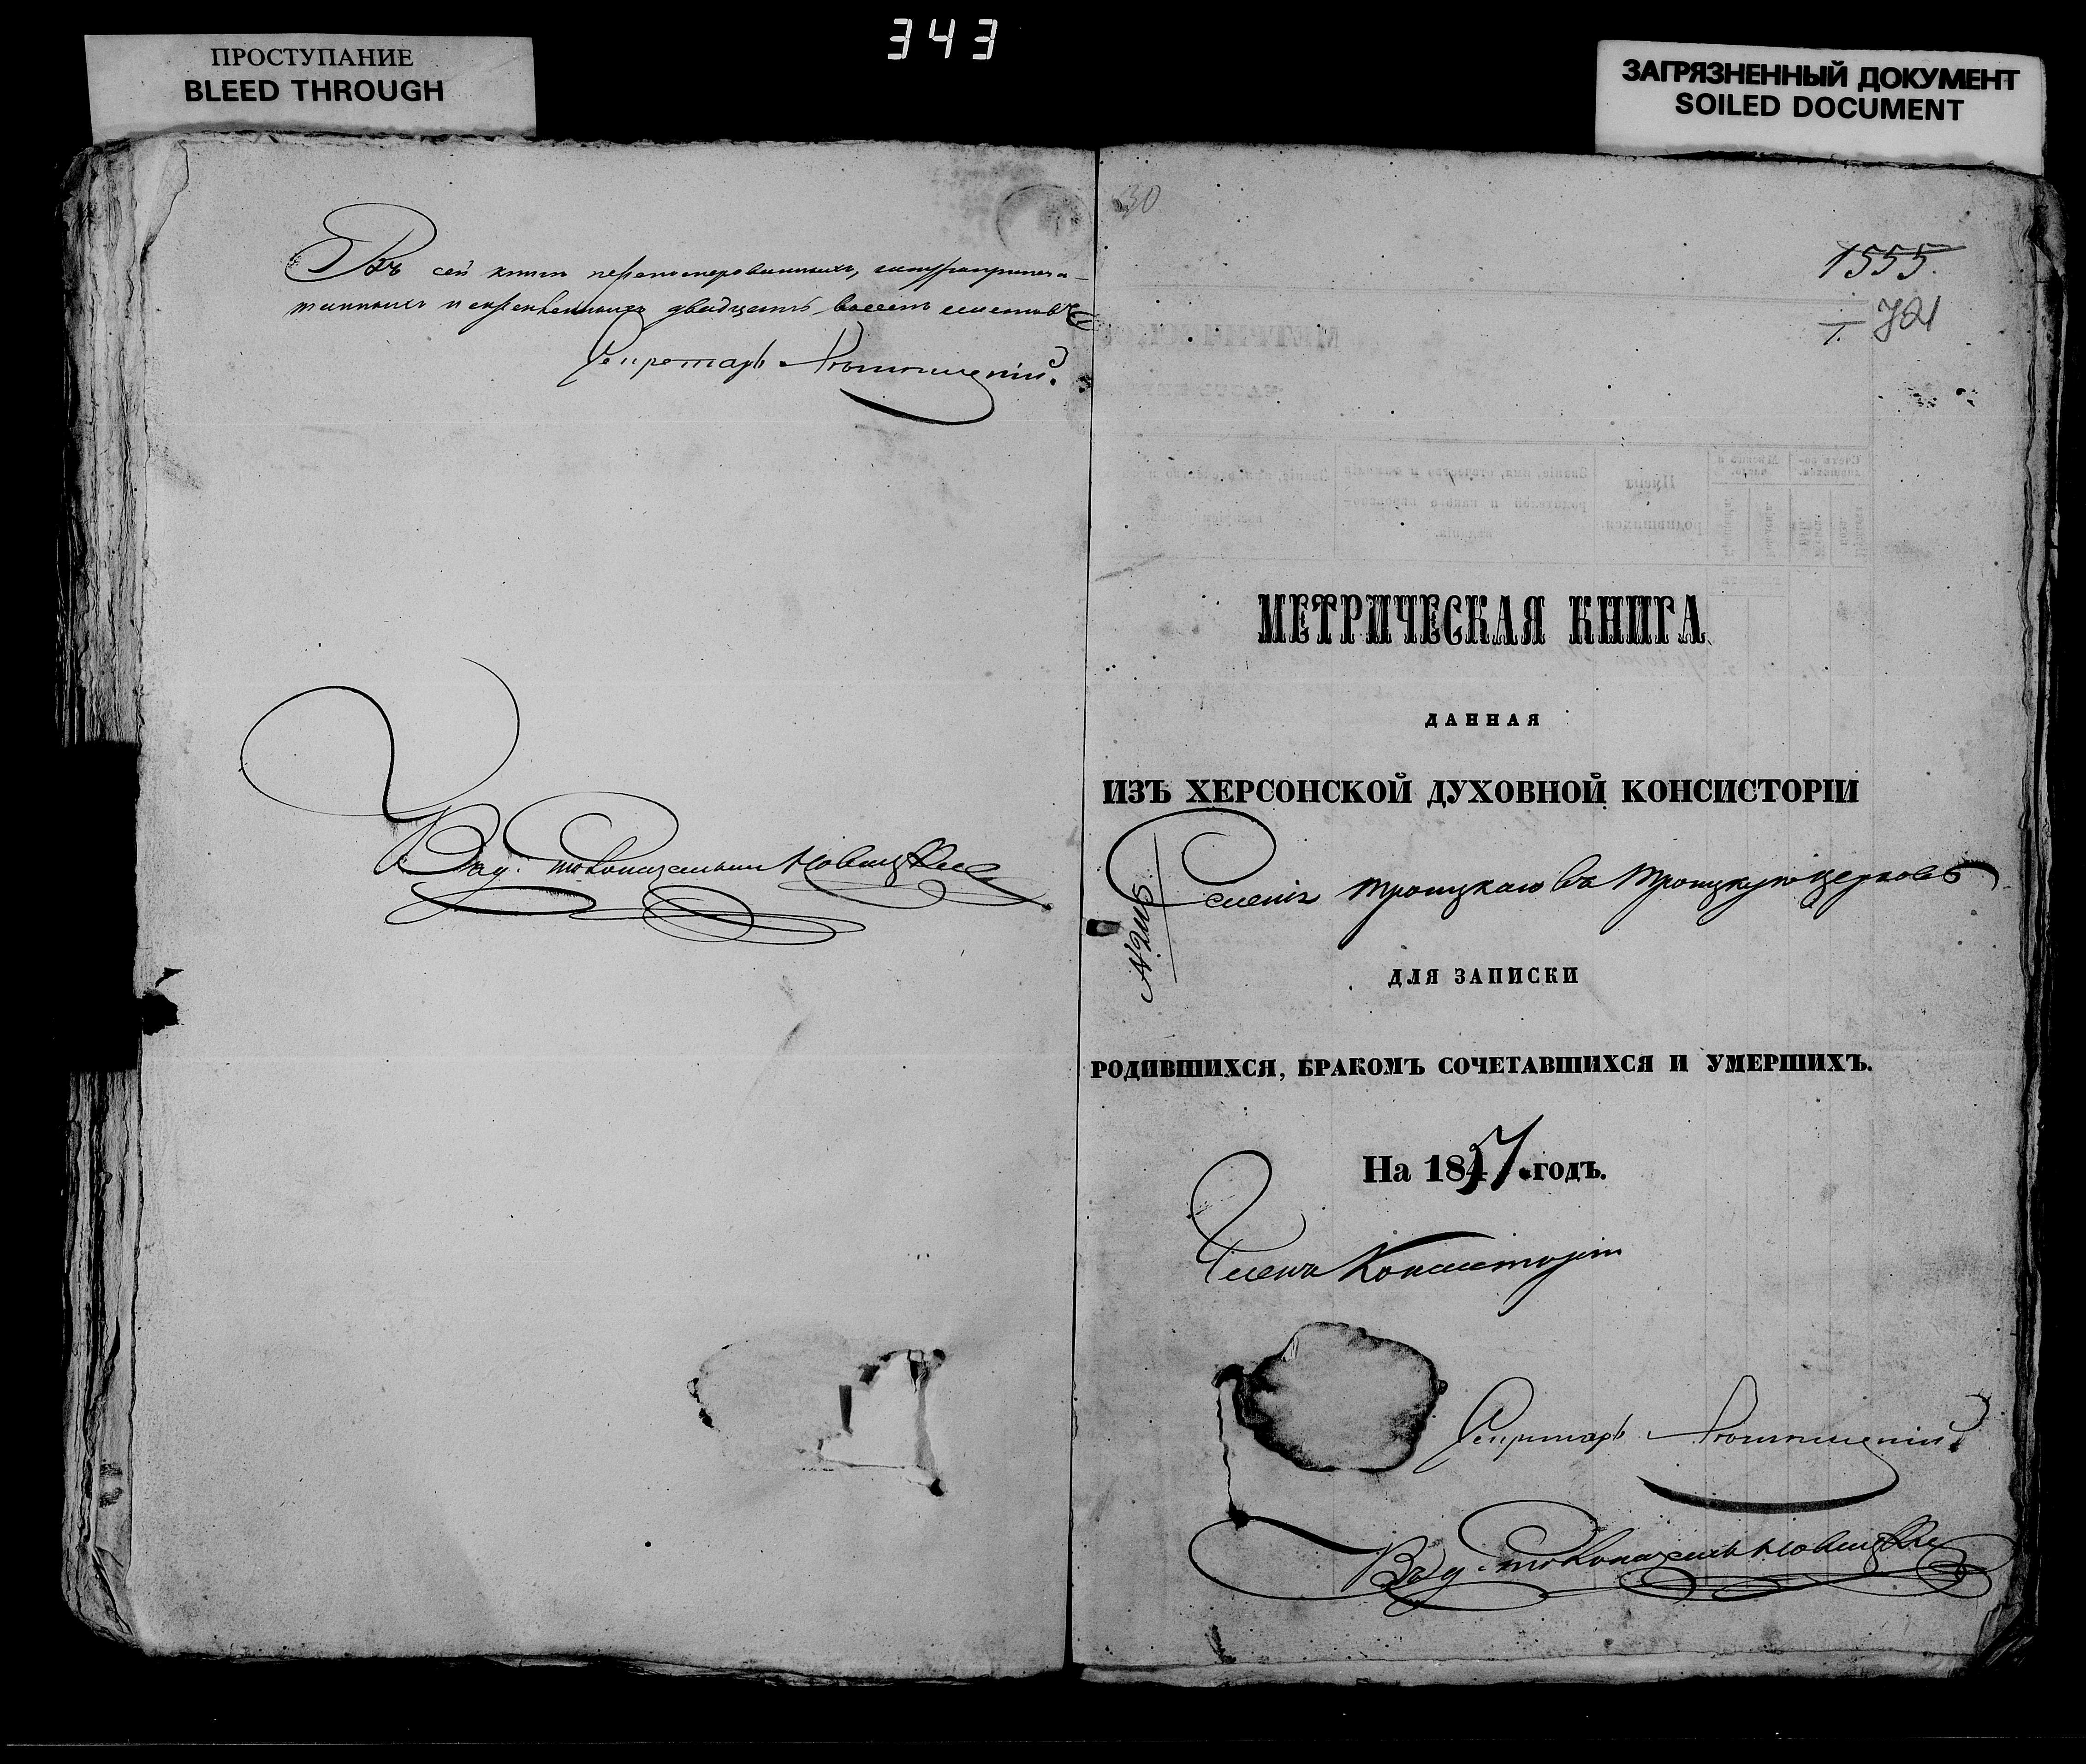 343
ПРОСТУПАНИЕ
BLEED THROUGH
ЗАГРЯЗНЕННЫЙ ДОКУМЕНТ
SOILED DOCUMENT
Въ сей книгѣ перенумерованныхъ, шнуроприпеча-
танныхъ и скрепленныхъ двадцать восемь листовъ
Секретарь
Новицкій
30
1555.
721
1.
МЕТРИЧЕСКАЯ КНИГА
ДАННАЯ
ИЗЪ ХЕРСОНСКОЙ ДУХОВНОЙ КОНСИСТОРІИ
Селенія Троицкаго въ Троицкую церковь
ДЛЯ ЗАПИСКИ
РОДИВШИХСЯ, БРАКОМЪ СОЧЕТАВШИХСЯ И УМЕРШИХЪ.
На 1857 годъ.
Членъ Консисторіи
Секретарь
Новицкій